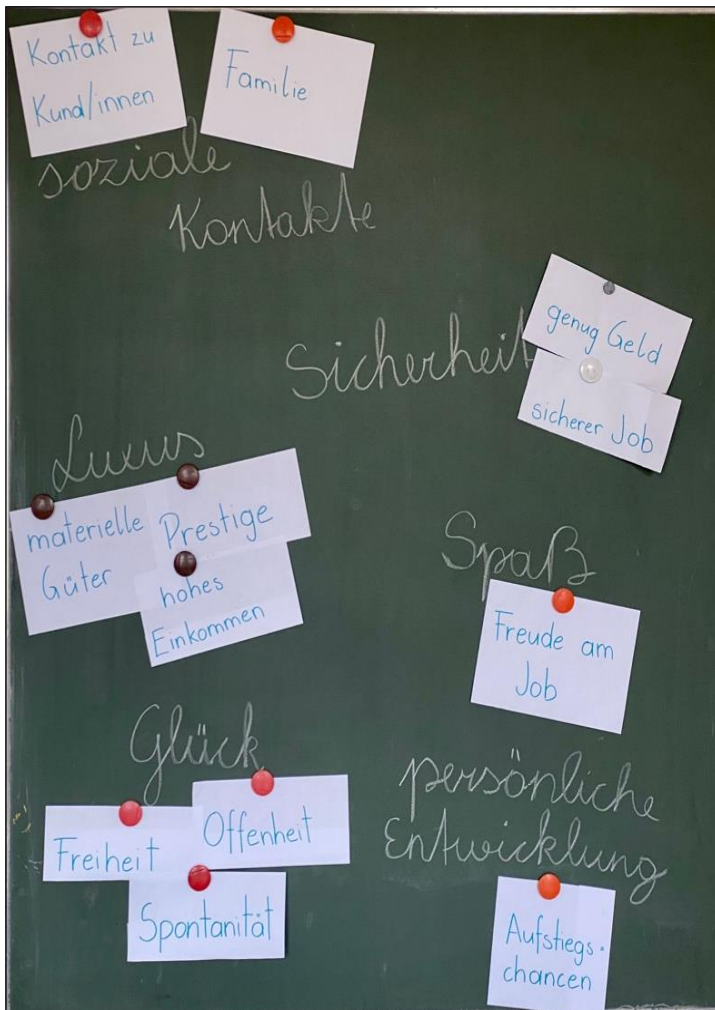 Kontakt zu
Kund/innen
Familie
soziale
Kontakte
Sicherheit
genug Geld
sicherer Job
Luxus
materielle
Güter
Prestige
hohes
Einkommen
Spaß
Freude am
Job
Glück
Freiheit
Offenheit
Spontanität
persönliche
Entwicklung
Aufstiegs-
chancen